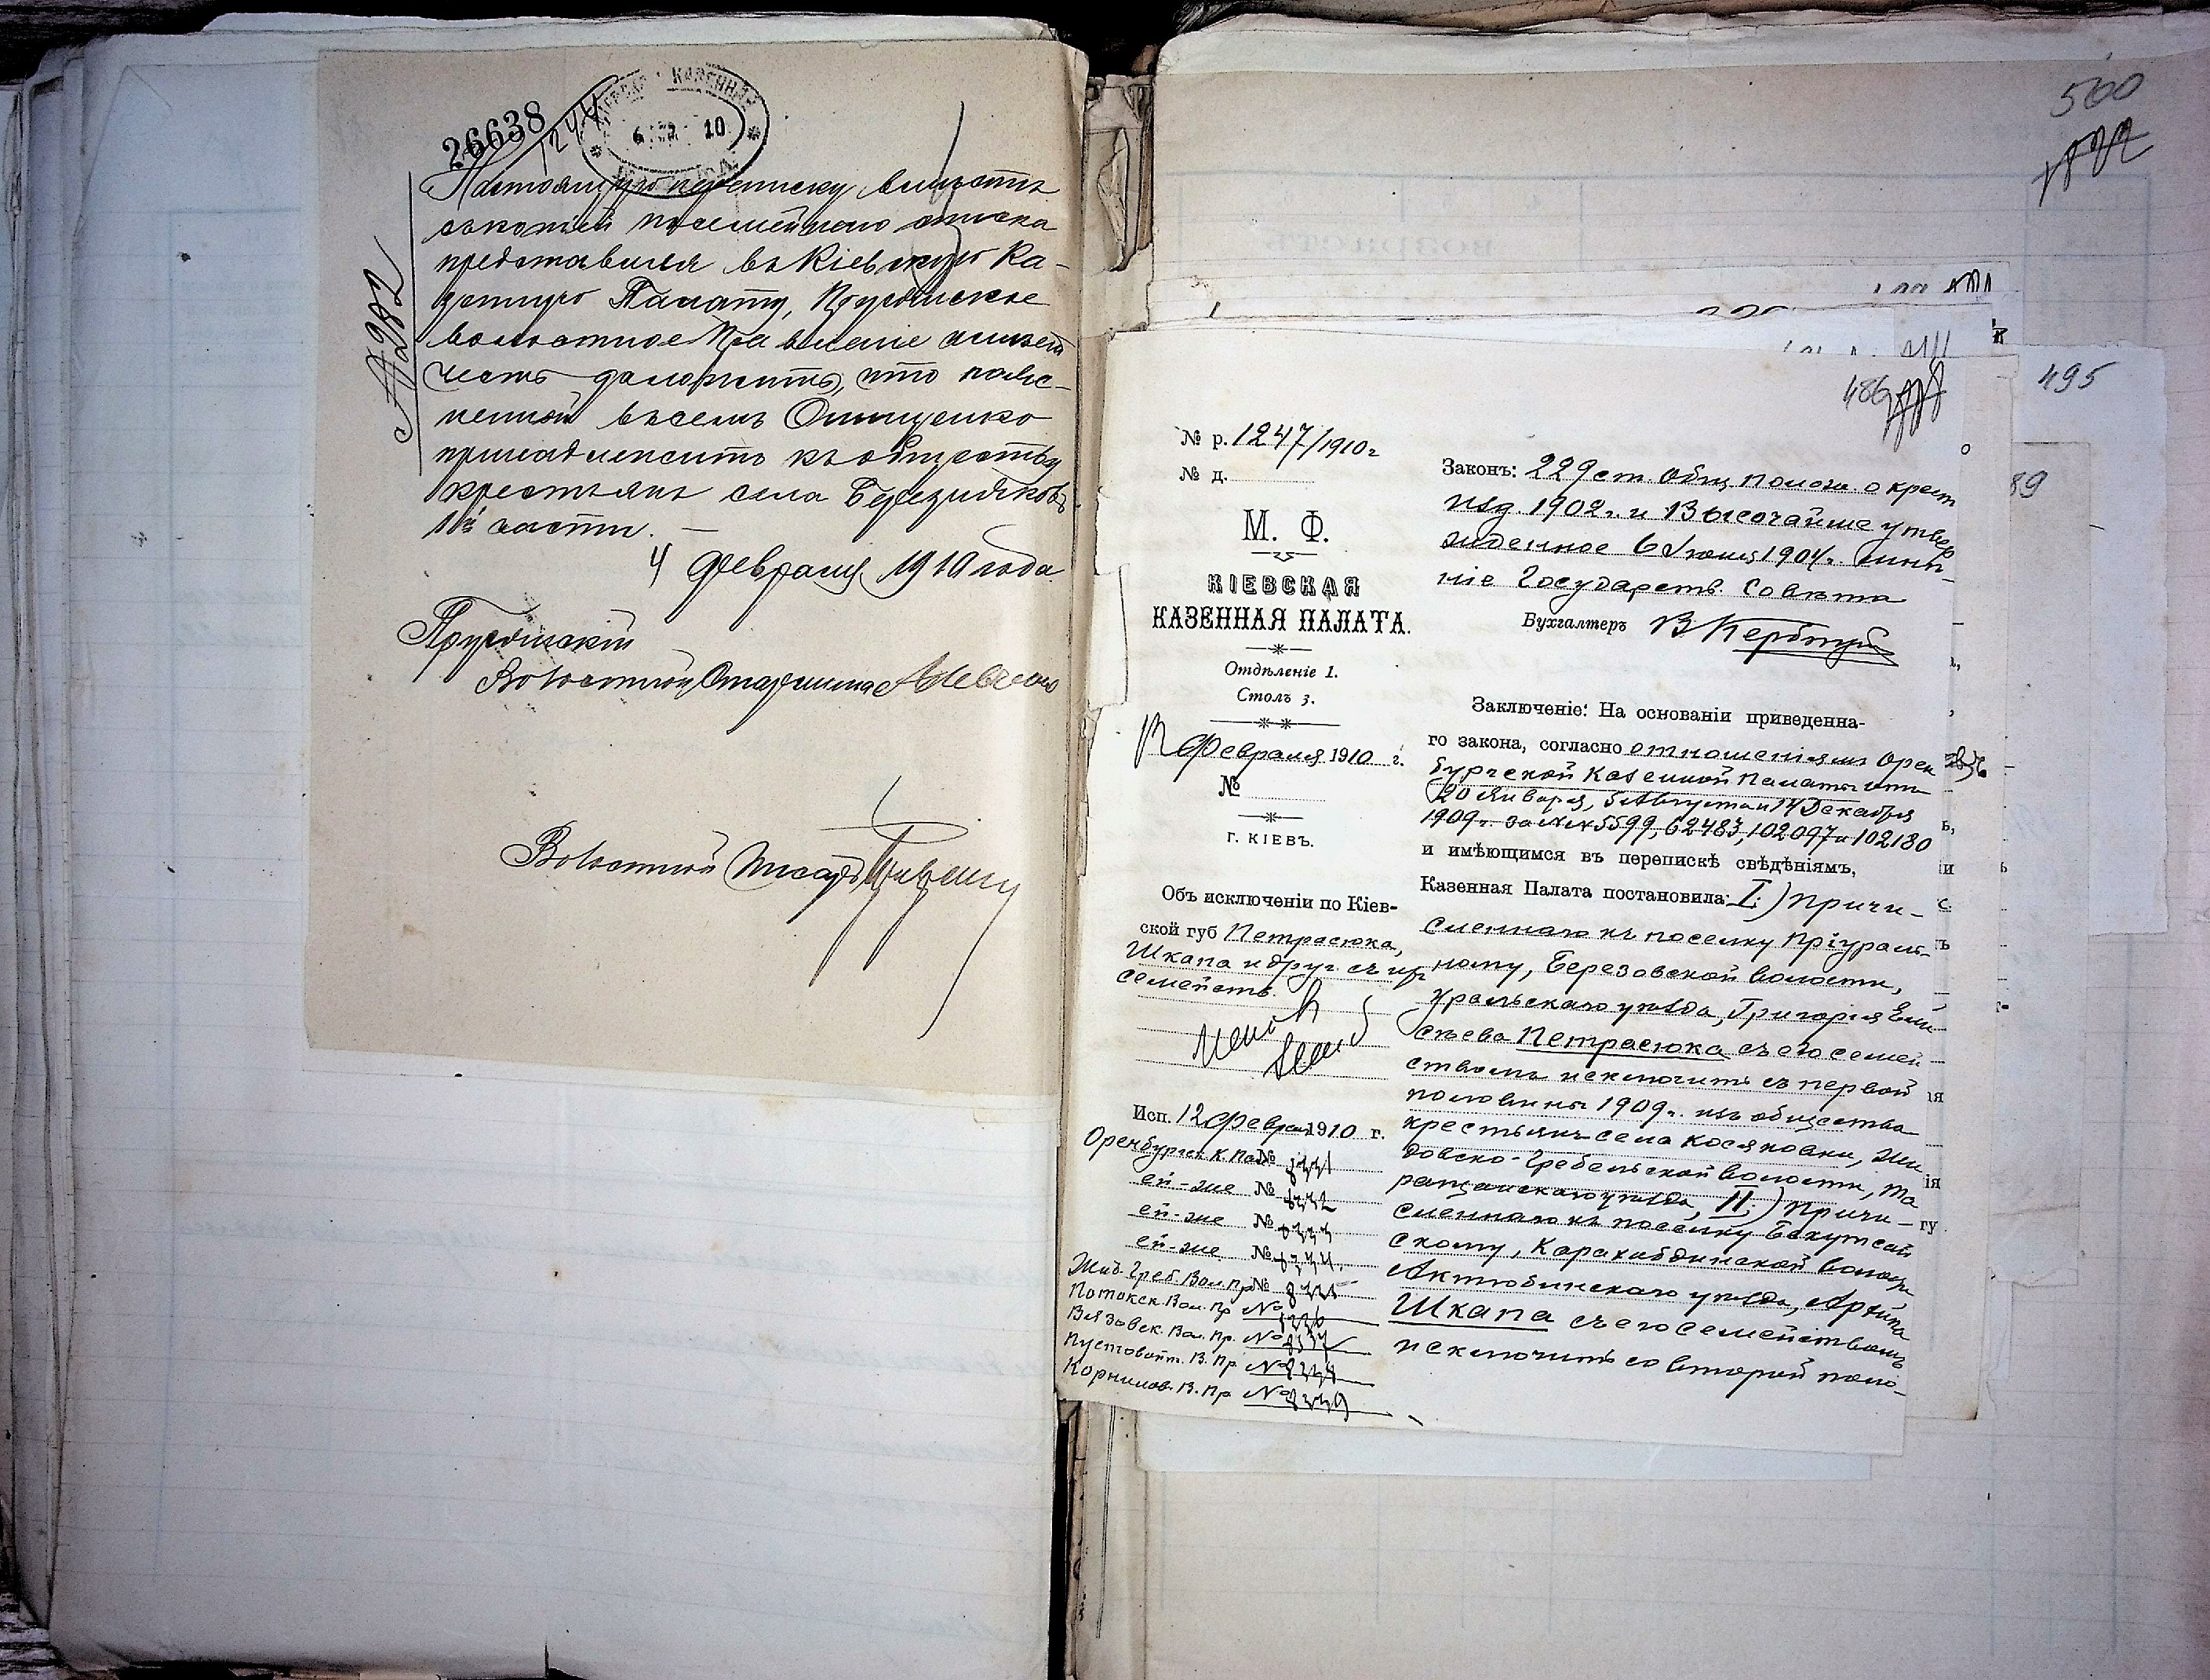 26638
1244
КІЕВСКАЯ КАЗЕННАЯ
6 10
№ 982
Настоящую переписку вмѣстѣ
съ копіей посемейнаго списка
представляя въ Кіевскую Ка-
зенную Палату,
волостное Правленіе имѣетъ
честь доложить, что
Онищенко
принадлежитъ къ обществу
крестьянъ села Березняковъ
1й части. —
4 февраля 1910 года
Волостной Старшина
Волостной Писарь
500
495
89
486
№ р. 1247/1910 г
№ д.
М. Ф.
КІЕВСКАЯ
КАЗЕННАЯ ПАЛАТА.
Отдѣленіе 1.
Столъ 3.
12 Февраля 1910 г.
№
Г. КІЕВЪ.
Объ исключеніи по Кіев-
ской губ Петрасюка,
Шкапа и друг. съ их
семейств.
Исп. 12 Февра 1910 г.
Оренбургск. К. Пал № 8331
ей-же № 8332
ей-же № 8333
ей-же № 8334
Жид. Греб. Вол. Пр № 8335
Потокск. Вол. Пр № 8336
Вязовск. Вол. Пр. № 8337
Пустовойт. В. Пр. № 8338
Корнилов. В. Пр № 8339
Законъ: 229 ст. Общ. Полож. о крест
изд. 1902 г. и Высочайше утвер
жденное 6 Іюня 1904 г. мнѣ-
ніе Государств. Совѣта
Бухгалтеръ
Заключеніе: На основаніи приведенна-
го закона, согласно отношеніямъ Орен
бургской Казенной Палаты отъ
20 Января, 5 Августа и 14 Декабря
1909 г. за №№ 5599, 62483, 102097 и 102180
и имѣющимся въ перепискѣ свѣдѣніямъ,
Казенная Палата постановила: I.) Причи-
сленнаго къ поселку Пріураль-
ному, Березовской волости,
Уральскаго уѣзда, Григорія Ели-
сѣева Петрасюка съ его семей-
ствомъ исключить съ первой
половины 1909 г. изъ общества
крестьянъ села Косяковки, Жи-
довско-Гребельской волости, Та
ращанскаго уѣзда, II.) Причи-
сленнаго къ поселку Бекутсай
скому, Карахобдинской волос
Актюбинскаго уѣзда, Архипа
Шкапа съ его семействомъ
исключить со второй поло-